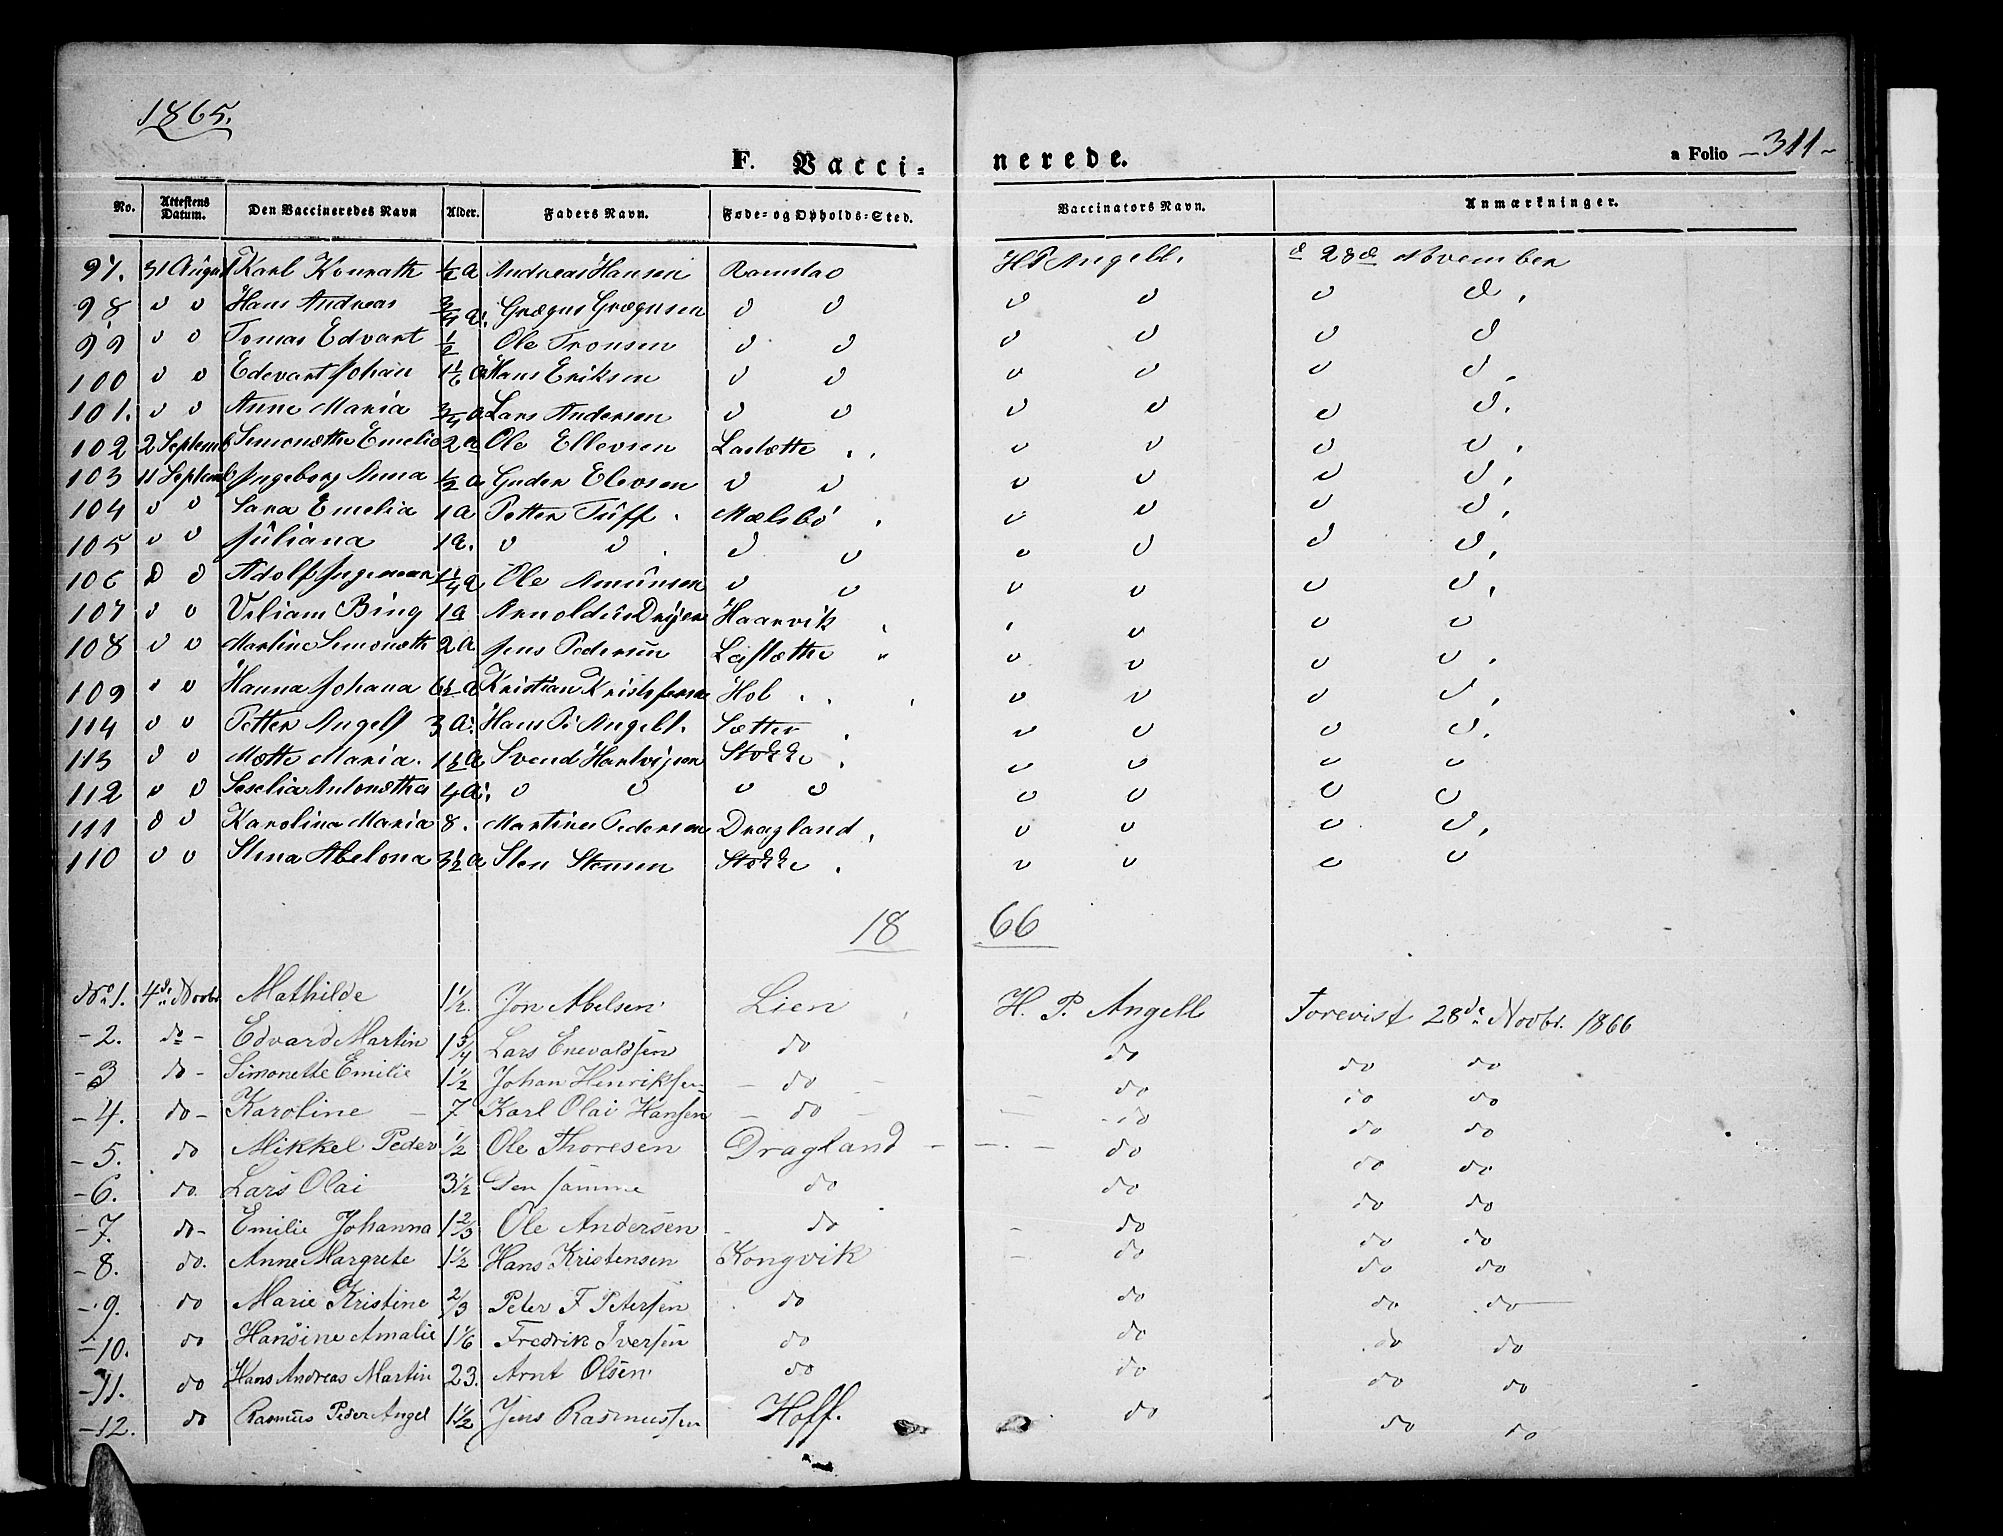 1865.
F. Vaccinerede. a Folio -311-
No. Attestens Datum. Den Vaccineredes Navn Alder. Faders Navn. Føde- og Opholds-Sted. Vaccinators Navn. Anmærkninger.
97. 31 August Karl Konrath ½ a Andreas Hansen Ramstad H P Angell. d 28de November
98 " " Hans Andreas ¾ a. Grægus Grægusen " " " " " "
99 " " Tomas Edvart ½ Ole Tronsen " " " " " "
100 " " Edevart Johan 1 1/6 a Hans Eriksen " " " " " "
101. " " Anne Maria ¾ a Lars Andersen " " " " " "
102 2 Septemb Simonætthe Emelia 2 a Ole Ellevsen Laslætte " " " "
103 11 Septemb Ingeborg Anna ½ a Gunder Elevsen " " " " " "
104 " " Sara Emelia 1 a Petter Tuff. Mælsbø " " " "
105 " " Juliana 1 a. " " " " " " " "
106 D " Adolf Ingeman 1¼ a Ole Amunsen " " " " " "
107 " " Viliam Bing 1 a Arnoldus Drejer Haarvik " " "
108 " " Martine Simonæth 2 a Jens Pedersen Lejslætte " " " "
109 " " Hanna Johana 6½ a Kristian Kristofersen Hol " " " "
114 " " Petter Angell 3 a. Hans P. Angell. Sætter " " " "
113 " " Mætte Maria. 1½ a Svend Hartvigsen Stokke " " " "
112 " " Seselia Antonætha 4 a. " " " " " " " "
111 " " Karolina Maria 8. Martines Pedersen Dragland " " " "
110 " " Stina Abelona 3½ a Sten Stensen Stokke " " " "
1866
No 1. 4de Novbr Mathilde 1½. Jon Abelsen. Lien H. P. Angell Forevist 28de Novbr. 1866
-2. do - Edvard Martin 1¾ Lars Enevaldsen do do do do
-3 do - Simonette Emilie 1½ Johan Henriksen - do - do do do
-4. do - Karoline - 7 Karl Olai Hansen - do - do do do
-5. do Mikkel Peder ½ Ole Thoresen Dragland - do do do
-6. do. Lars Olai 3½ Den samme do do do do
-7. do - Emilie Johanna 1⅔ Ole Andersen do do do do
-8. do. Anne Margrete 1½ Hans Kristensen Kongvik do do do
-9. do Marie Kristine ⅔ Peter F Petersen do do do do
-10. do Hansine Amalie 1 1/6 Fredrik Iversen do do do do
-11. do Hans Andreas Martin 23. Arnt Olsen. do do do do
-12. do Rasmus Peder Angel 1½ Jens Rasmussen Hoff. do do do